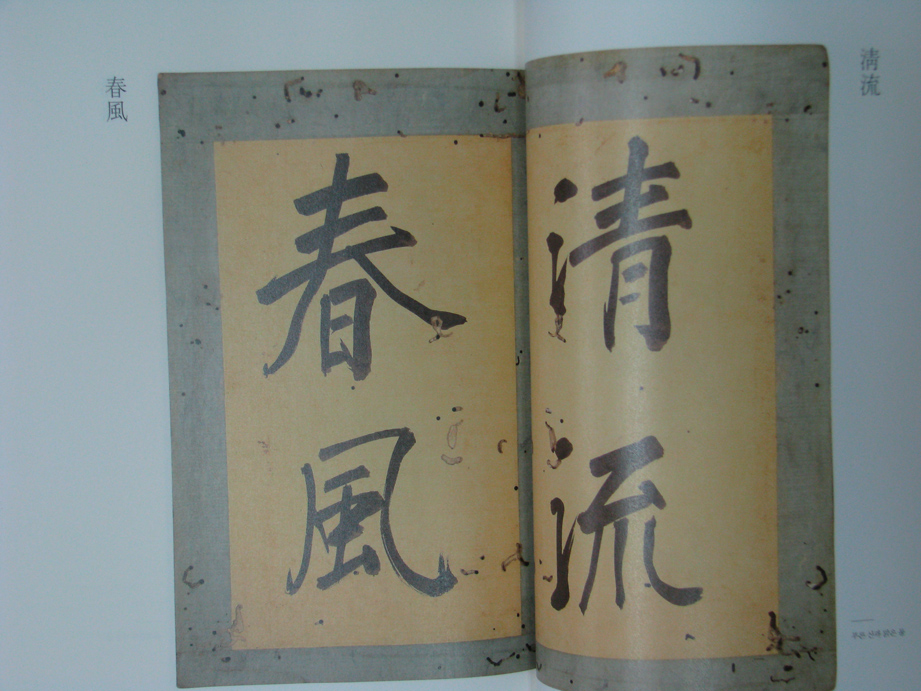 春風
春風
清流
清流